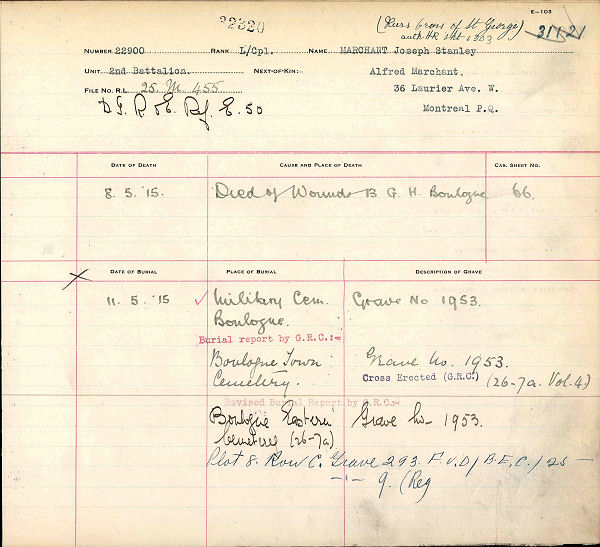 E-103
22320
(Russ Cross of St George)
auth HR Sht 1303
31121
NUMBER 22900 RANK L/Cpl. NAME MARCHANT Joseph Stanley
UNIT 2nd Battalion. NEXT-OF-KIN:- Alfred Marchant,
FILE NO. R.L. 25. M. 455 36 Laurier Ave. W.
Ref. E. 50 Montreal P.Q.
DATE OF DEATH CAUSE AND PLACE OF DEATH CAS. SHEET NO.
8. 5. '15. Died of Wounds 13 G. H. Boulogne 66.
DATE OF BURIAL PLACE OF BURIAL DESCRIPTION OF GRAVE
11. 5. '15 ✓ Military Cem. Grave No 1953.
Boulogne.
Burial report by G.R.C.:=
Boulogne Town Grave No. 1953.
Cemetery. Cross Erected (G.R.C.) (26-7a. Vol. 4)
Revised Burial Report by G.R.C.:=
Boulogne Eastern Grave No- 1953.
Cemetery (26-7a)
Plot 8. Row C. Grave 293. F.V.D/B.E.C./25 -
9. (Reg